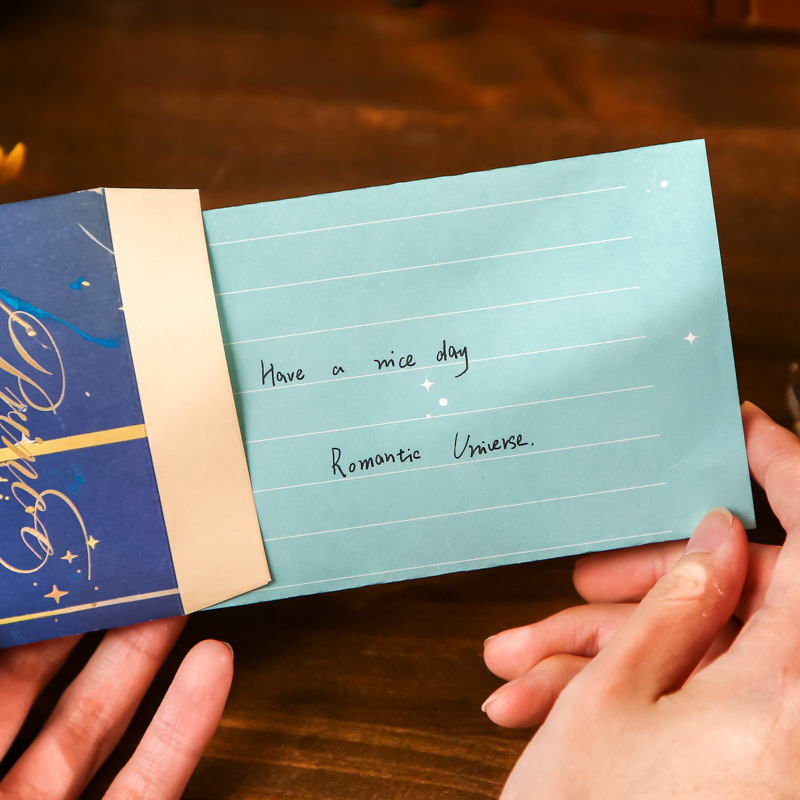 Have a nice day
Romantic Universe.
Prince